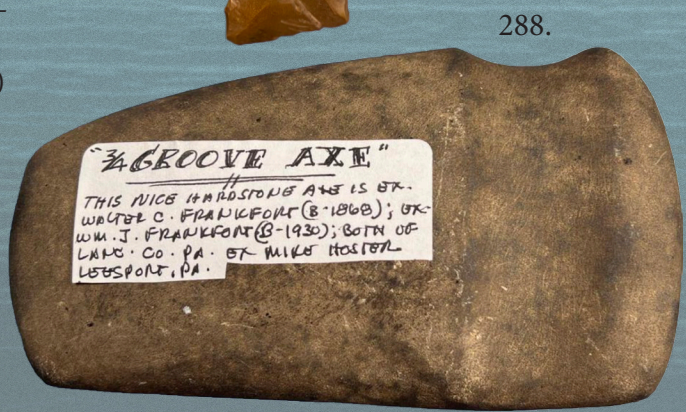 288.
"3/4 GROOVE AXE"
THIS NICE HARDSTONE AXE IS EX-
WALTER C. FRANKFORT (B-1868); EX-
WM. J. FRANKFORT (B-1930); BOTH OF
LANC. CO. PA. EX MIKE HOSTER
LEESPORT, PA.